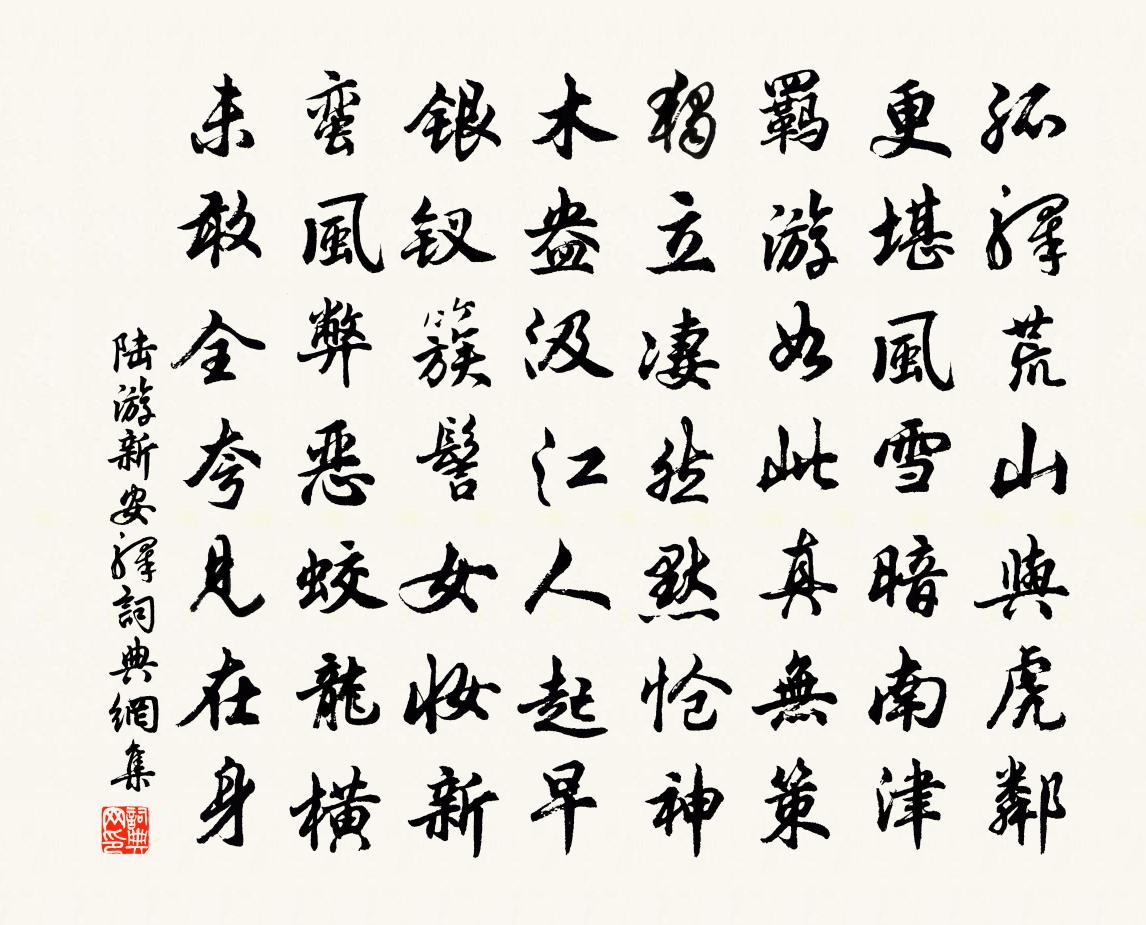 孤驛荒山與虎鄰
更堪風雪暗南津
羈游如此真無策
獨立凄然默愴神
木盎汲江人起早
銀釵簇髻女妝新
蠻風弊惡蛟龍橫
未敢全夸見在身
陸游新安驛詞典網集
詞典网印